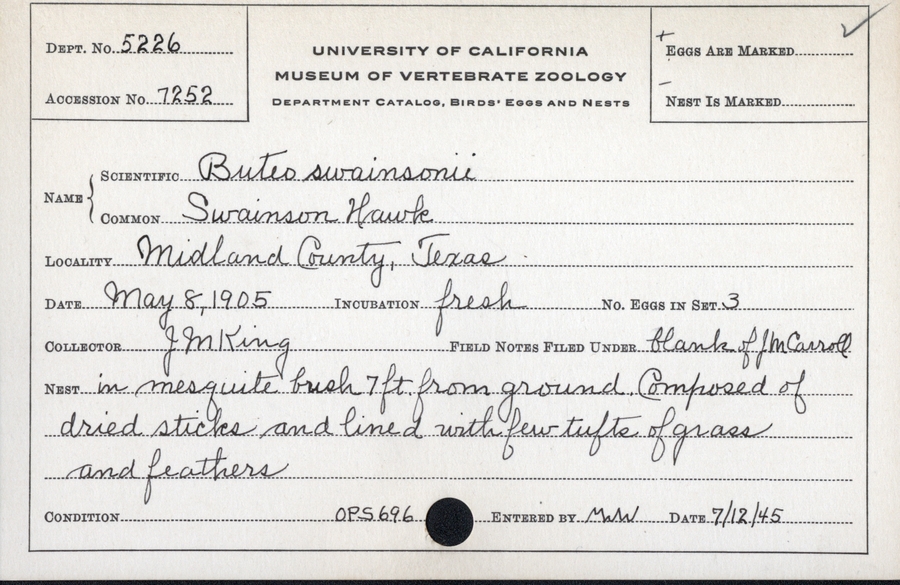 Dept. No. 5226
Accession No. 7252
UNIVERSITY OF CALIFORNIA
MUSEUM OF VERTEBRATE ZOOLOGY
Department Catalog, Birds' Eggs and Nests
+ Eggs Are Marked ✓
− Nest Is Marked
Name
Scientific Buteo swainsonii
Common Swainson Hawk
Locality Midland County, Texas
Date May 8, 1905 Incubation fresh No. Eggs in Set 3
Collector J M King Field Notes Filed Under blank of J M Carroll
Nest in mesquite bush 7 ft. from ground. Composed of
dried sticks and lined with few tufts of grass
and feathers
Condition OPS 696 Entered by MWW Date 7/12/45